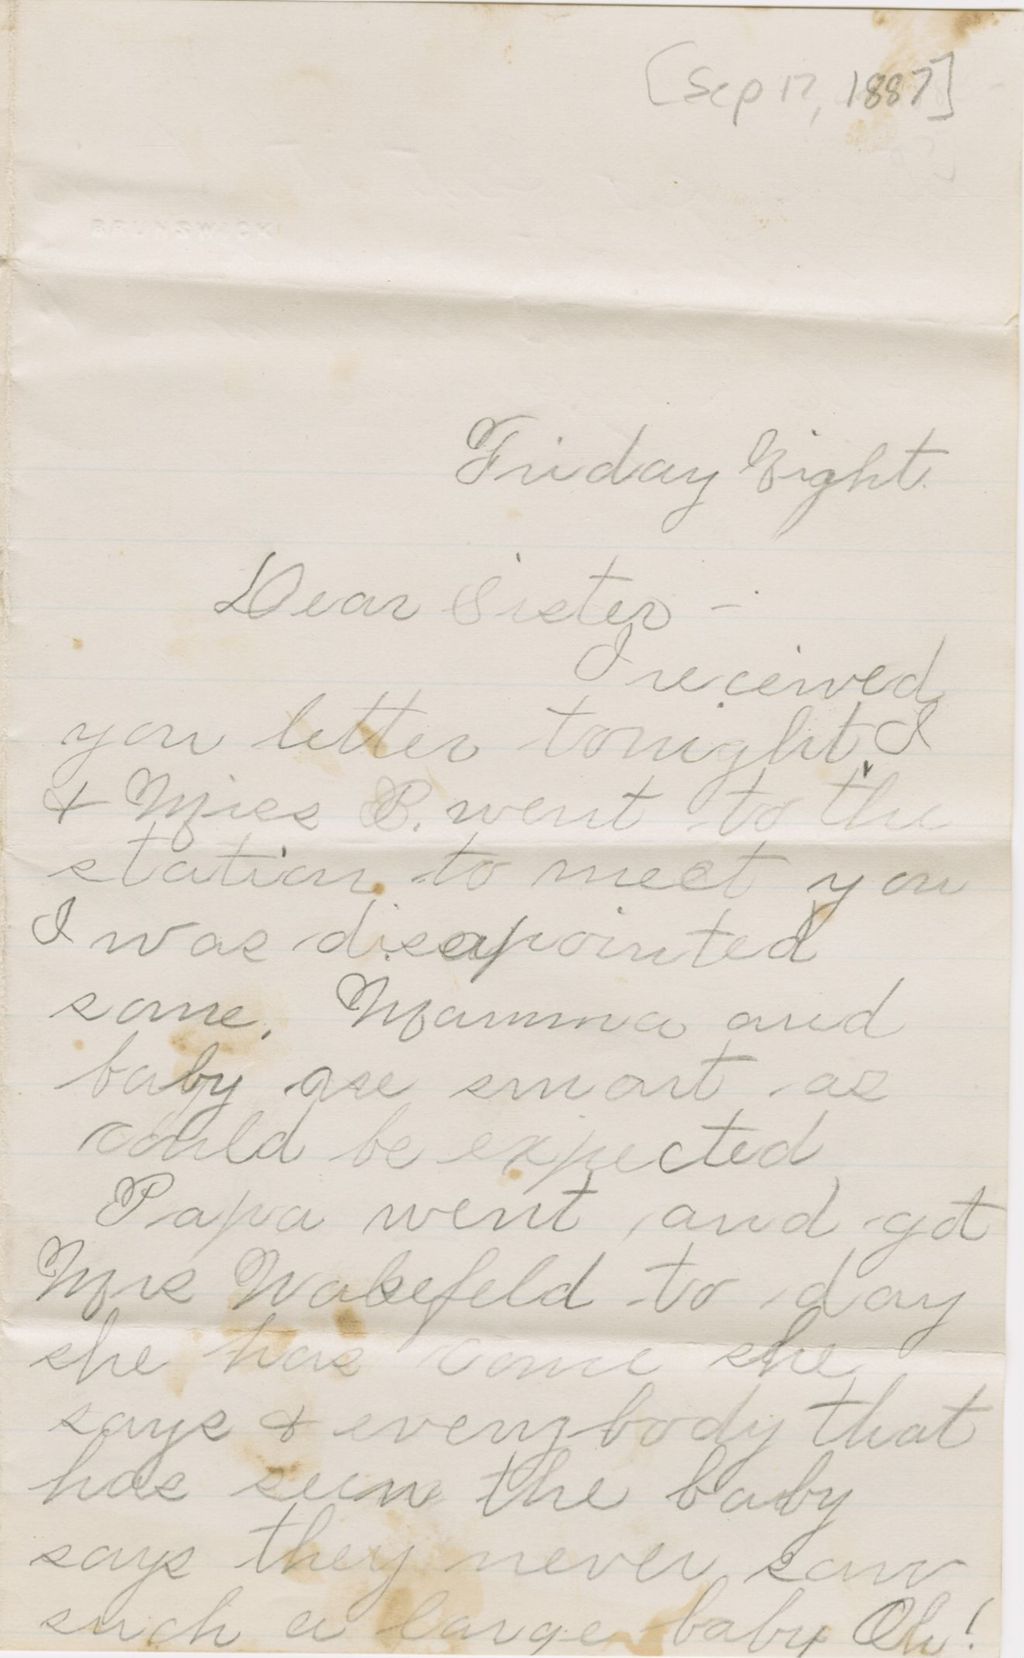 [Sep 17, 1887]
BRUNSWICK
Friday Night.
Dear Sister -
I recieved
you letter tonight. I
& Miss P. went to the
station to meet you
I was disapointed
some. Mamma and
baby are smart as
could be expected
Papa went and got
Mrs Wakefeld to day
she has come she
says & everybody that
has seen the baby
says they never saw
such a large baby Oh!